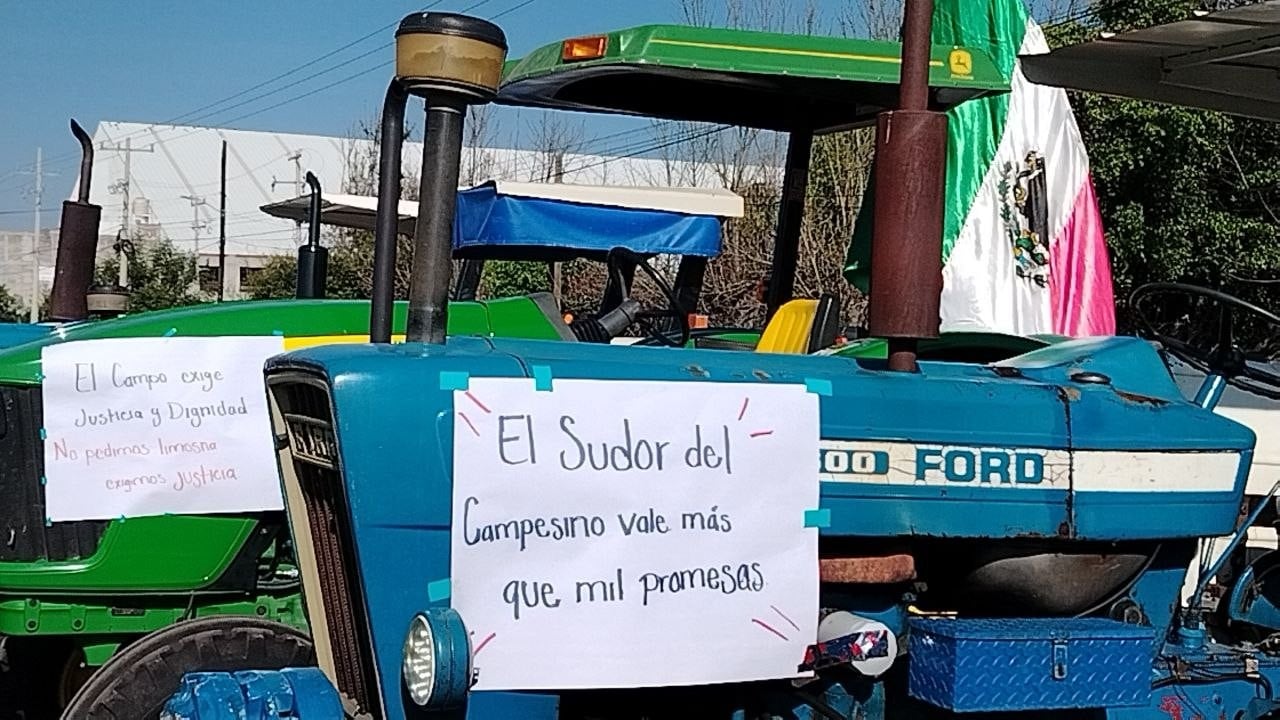 El Campo exige
Justicia y Dignidad
No pedimos limosna
exigimos justicia
El Sudor del
Campesino vale más
que mil promesas
600 FORD